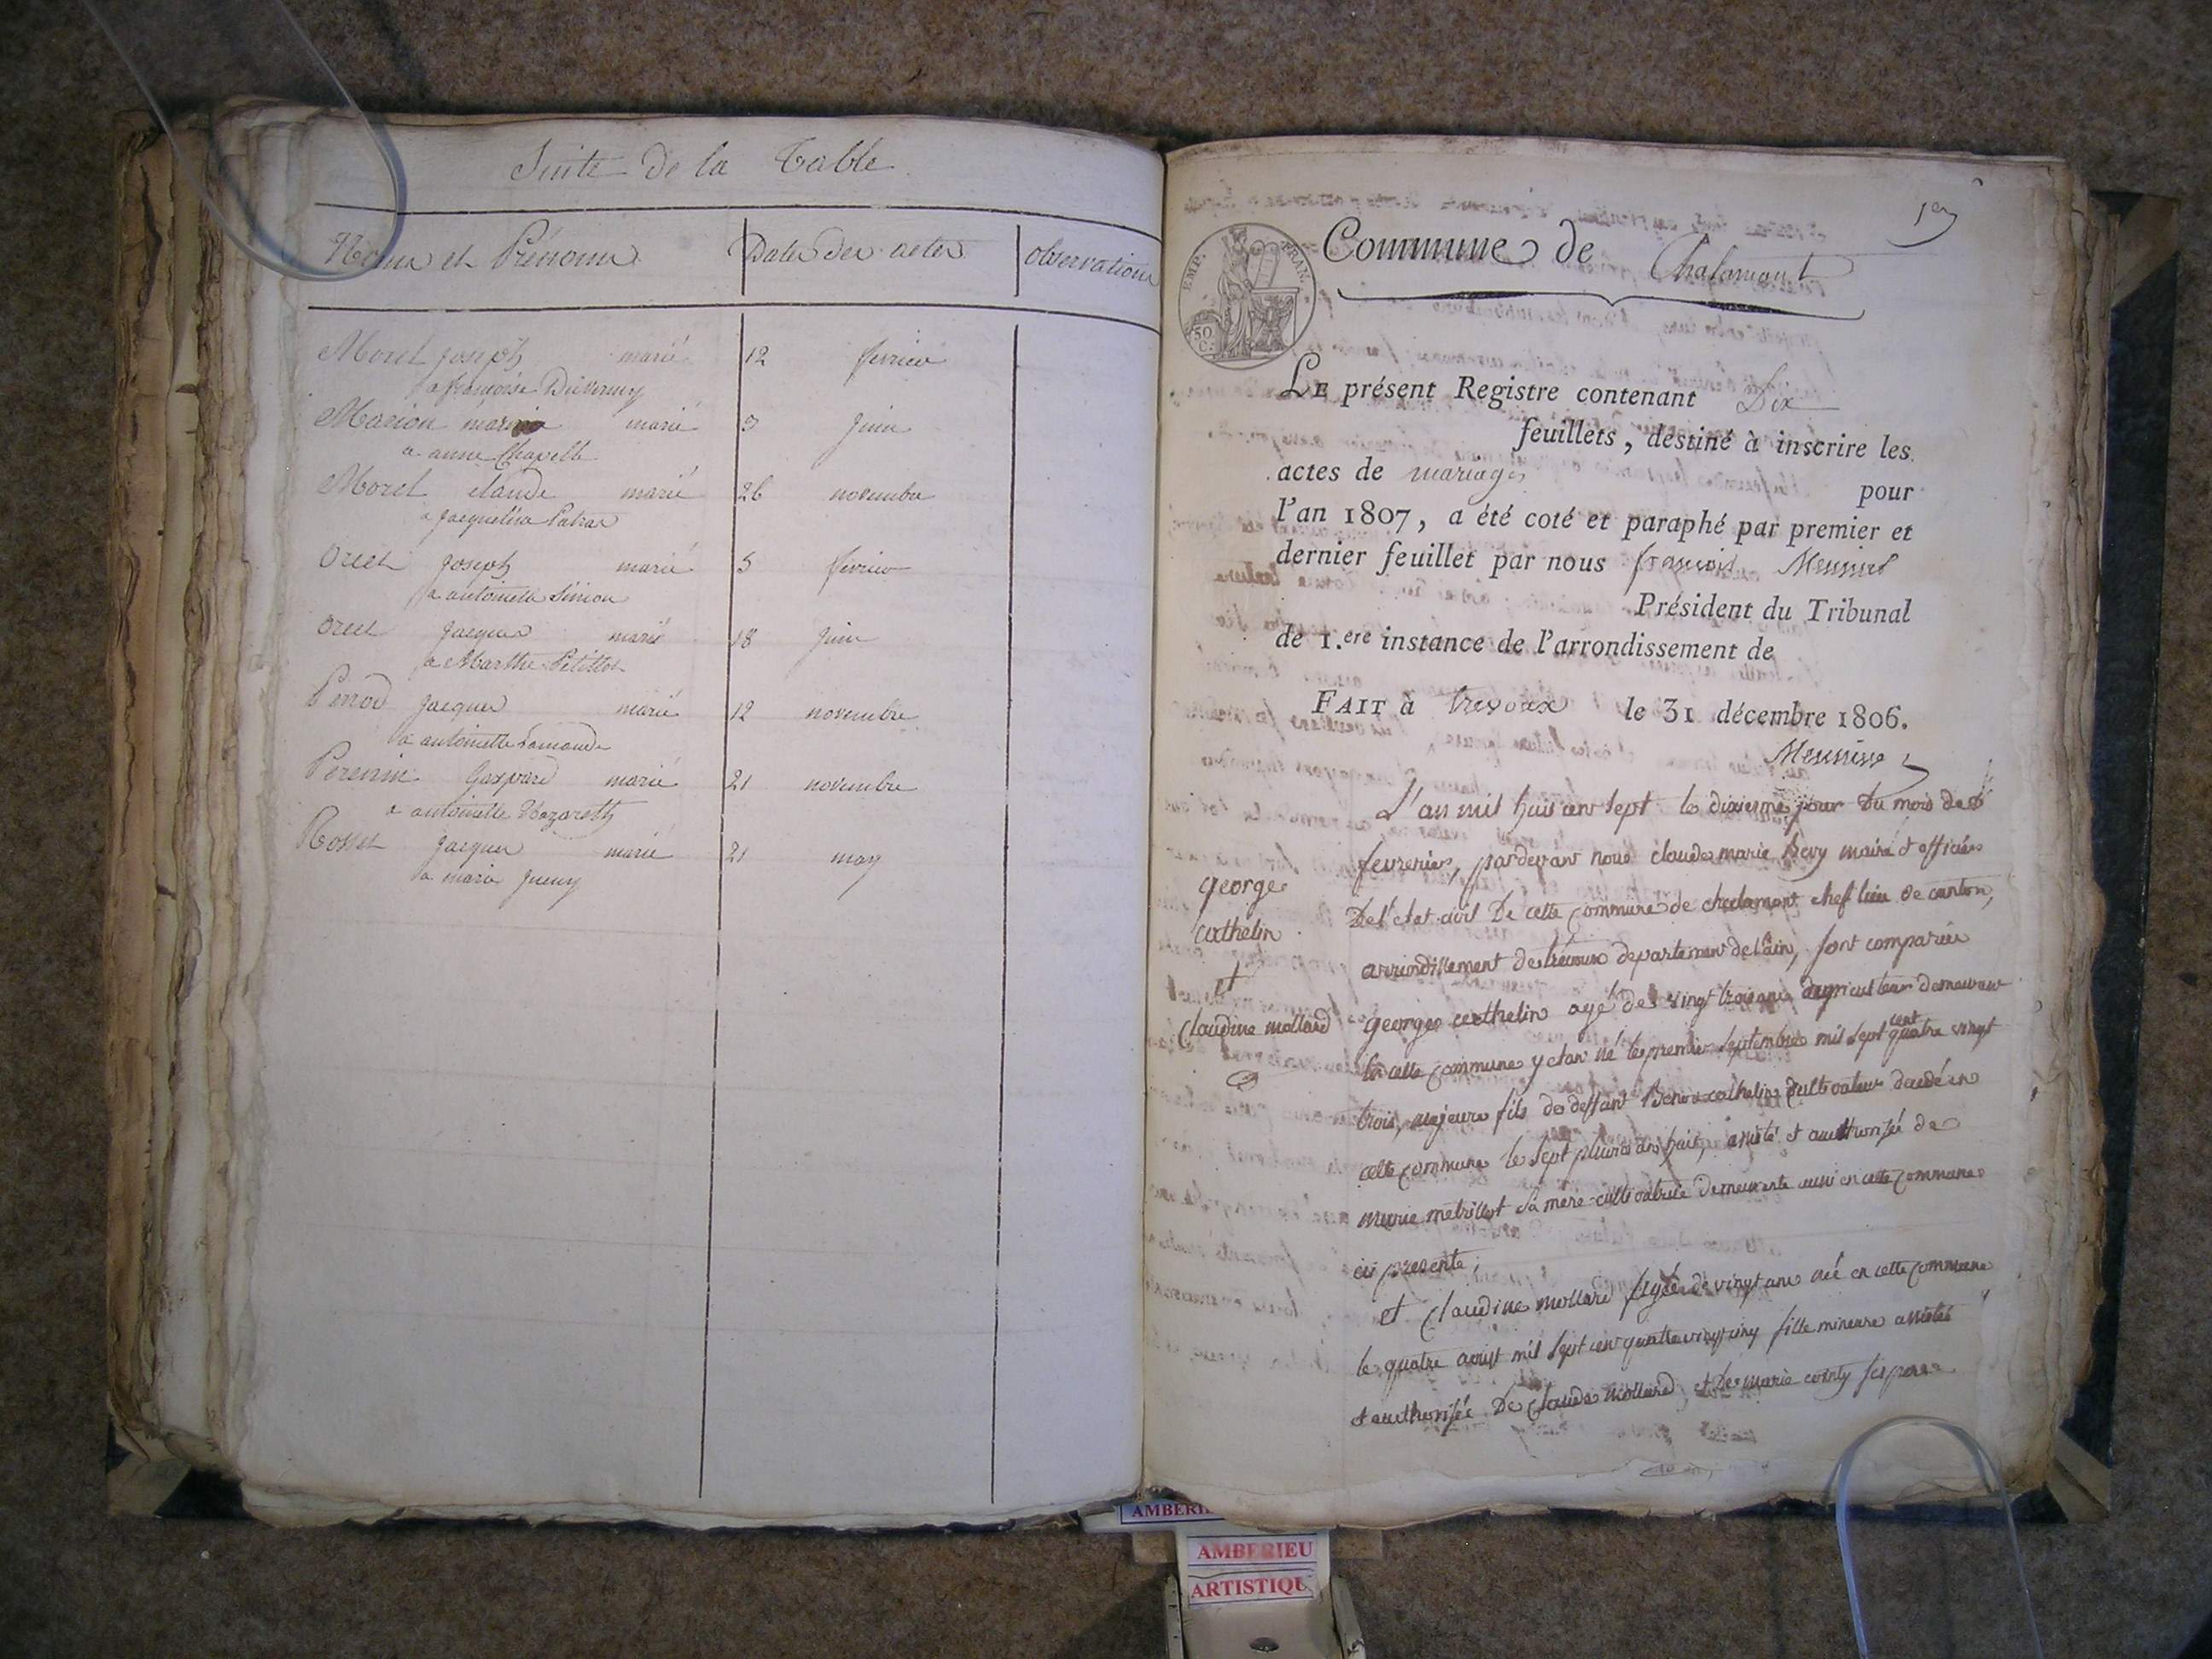 Suite de la Table
Noms et Prénoms
Dates des actes
observations
Morel joseph marié 12 fevrier
a françoise
Marion marié 3 juin
a anne Chapelle
Morel claude marié 26 novembre
a jacqueline
Orcet joseph marié 5 fevrier
a antoinette Simon
Orcet jacques marié 18 juin
a Marthe Petittot
Penod jacques marié 12 novembre
a antoinette
Perenin gaspard marié 21 novembre
a antoinette Nazareth
Rosset jacques marié 21 may
a marie
1er
EMP. FRAN.
50 C.
Commune de Chalamont
LE présent Registre contenant Dix
feuillets, destiné à inscrire les
actes de mariages pour
l'an 1807, a été coté et paraphé par premier et
dernier feuillet par nous françois Meunier
Président du Tribunal
de 1.ere instance de l'arrondissement de
FAIT à Trevoux le 31 décembre 1806.
Meunier
L'an mil huit cent sept le dixieme jour du mois de
fevrerier, pardevant nous claude marie maire et officier
De l'etat civil De cette commune de chalamont chef lieu de canton,
arrondissement de trévoux departement de l'ain, sont comparus
george cathelin agé de vingt trois ans agriculteur demeurant
En cette commune y etant né le premier septembre mil sept cent quatre vingt
trois, majeure fils de deffunt cathelin cultivateur décédé en
cette commune le sept pluvio an huit, assisté et authorisé de
marie metrillot sa mere cultivatrice demeurante aussi en cette commune
ici presente,
et claudine mollard agée de vingt ans née en cette commune
le quatre aoust mil sept cent quattre vingt cinq fille mineure assistée
et authorisée De claude mollard, et de marie ses pere
george
cathelin
et
Claudine mollard
AMBERIEU
ARTISTIQU